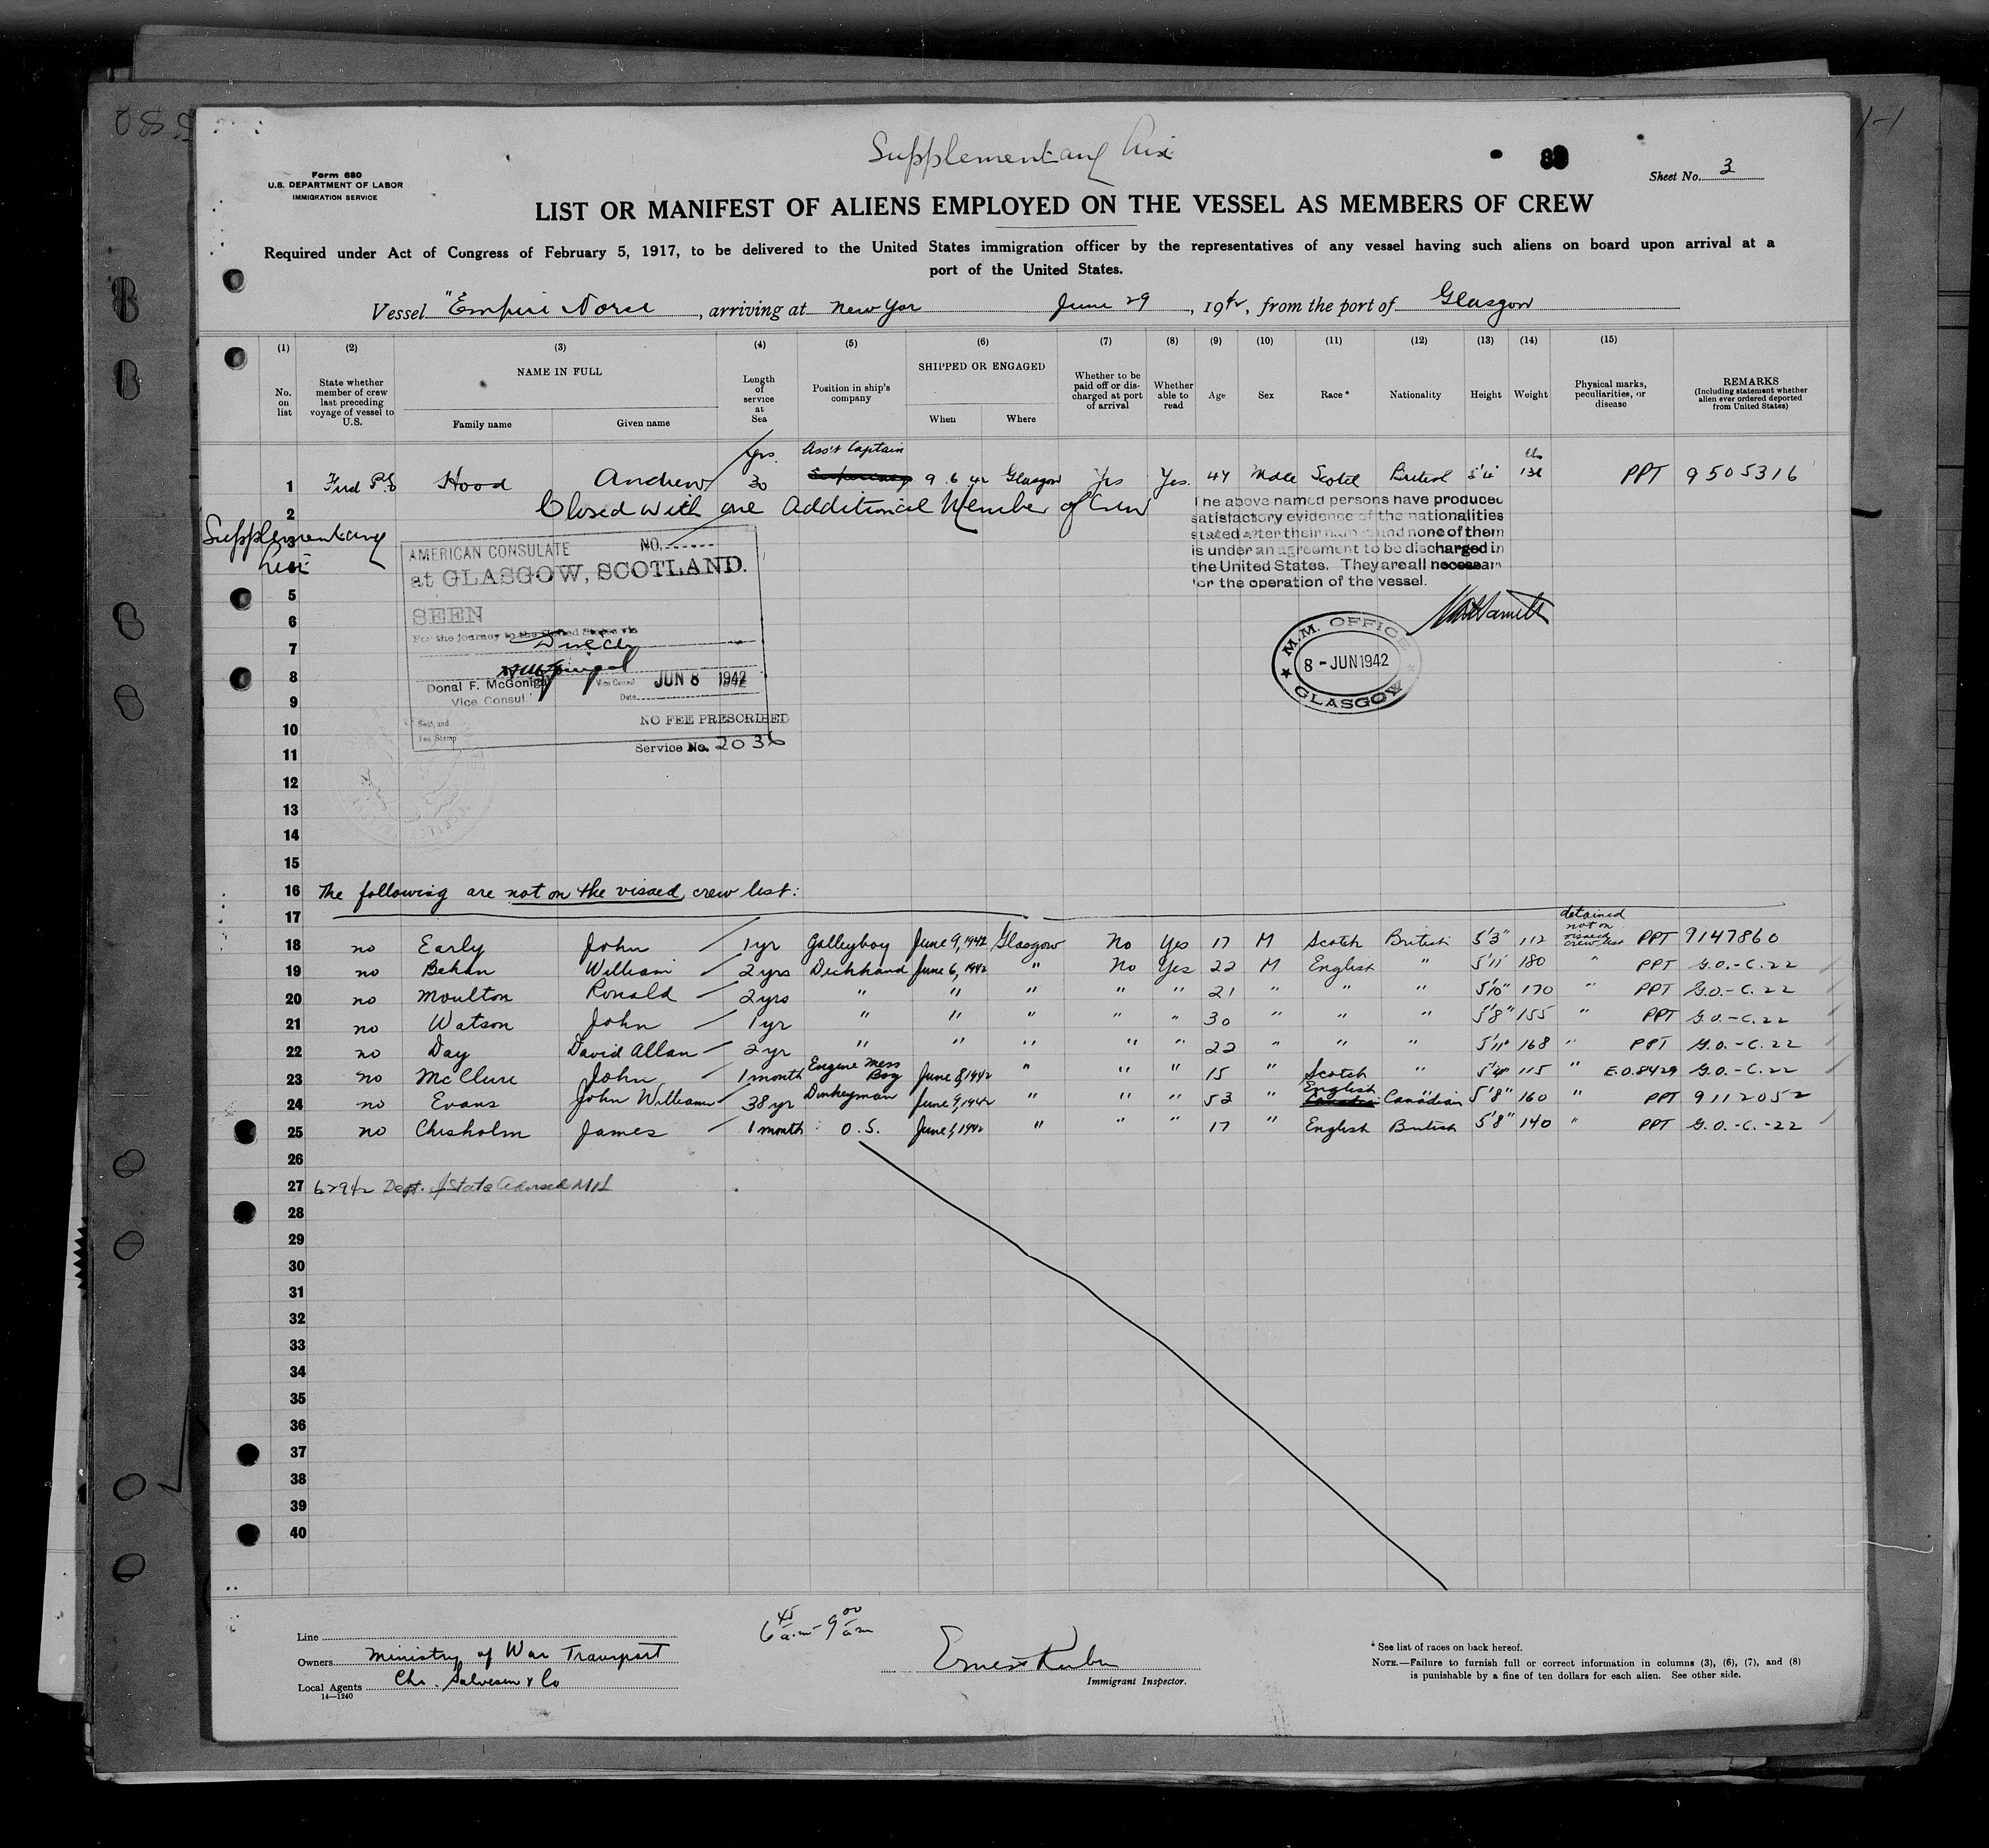 Supplementary
Sheet No. 3
Form 680
U.S. DEPARTMENT OF LABOR
IMMIGRATION SERVICE
LIST OR MANIFEST OF ALIENS EMPLOYED ON THE VESSEL AS MEMBERS OF CREW
Required under Act of Congress of February 5, 1917, to be delivered to the United States immigration officer by the representatives of any vessel having such aliens on board upon arrival at a
port of the United States.
Vessel "Empire Norse , arriving at New Yor June 29 , 1942, from the port of Glasgow
(1) (2) (3) (4) (5) (6) (7) (8) (9) (10) (11) (12) (13) (14) (15)
No. on list State whether member of crew last preceding voyage of vessel to U.S. NAME IN FULL Family name Given name Length of service at Sea Position in ship's company SHIPPED OR ENGAGED When Where Whether to be paid off or discharged at port of arrival Whether able to read Age Sex Race* Nationality Height Weight Physical marks, peculiarities, or disease REMARKS (Including statement whether alien ever ordered deported from United States)
yrs. Ass't Captain
1 Hood Andrew 30 9.6.42 Glasgow Yes Yes. 47 Male Scotch British 5'4" 138 PPT 9505316
2 Closed with one Additional Member of Crew
The above named persons have produced
satisfactory evidence of the nationalities
stated after their names and none of them
is under an agreement to be discharged in
the United States. They are all necessary
for the operation of the vessel.
Supplementary
List
3
4
AMERICAN CONSULATE NO.
at GLASGOW, SCOTLAND.
5
SEEN
6
For the journey to the United States via
7 Directly
8
Donal F. McGonigal Vice Consul JUN 8 1942
Vice Consul Date
9
M.M. OFFICE
8 - JUN 1942
GLASGOW
10 Seal and Fee Stamp NO FEE PRESCRIBED
11 Service No. 2036
12
13
14
15
16 The following are not on the visaed crew list:
17 detained not on visaed crew list
18 no Early John 1 yr Galleyboy June 9, 1942 Glasgow No Yes 17 M Scotch British 5'3" 112 PPT 9147860
19 no Behan William 2 yrs Deckhand June 6, 1942 " No Yes 22 M English " 5'11 180 " PPT G.O.-C.22
20 no Moulton Ronald 2 yrs " " " " " 21 " " " 5'10" 170 " PPT G.O.-C.22
21 no Watson John 1 yr " " " " " 30 " " " 5'8" 155 " PPT G.O.-C.22
22 no Day David Allan 2 yr " " " " " 22 " " " 5'11" 168 " PPT G.O.-C.22
23 no McClure John 1 month Engine Mess Boy June 8, 1942 " " " 15 " Scotch " 5'4" 115 " E.O.8429 G.O.-C.22
24 no Evans John William 38 yr Donkeyman June 9, 1942 " " " 53 " English Canadian 5'8" 160 " PPT 9112052
25 no Chisholm James 1 month O.S. June 1, 1942 " " " 17 " English British 5'8" 140 " PPT G.O.-C.-22
26
27 62942 Dept. of State Advised
28
29
30
31
32
33
34
35
36
37
38
39
40
6 45 a.m - 9 00 a.m
Line
Owners Ministry of War Transport
Local Agents Chr. Salvesen & Co
14—1240
Immigrant Inspector.
* See list of races on back hereof.
NOTE.—Failure to furnish full or correct information in columns (3), (6), (7), and (8)
is punishable by a fine of ten dollars for each alien. See other side.